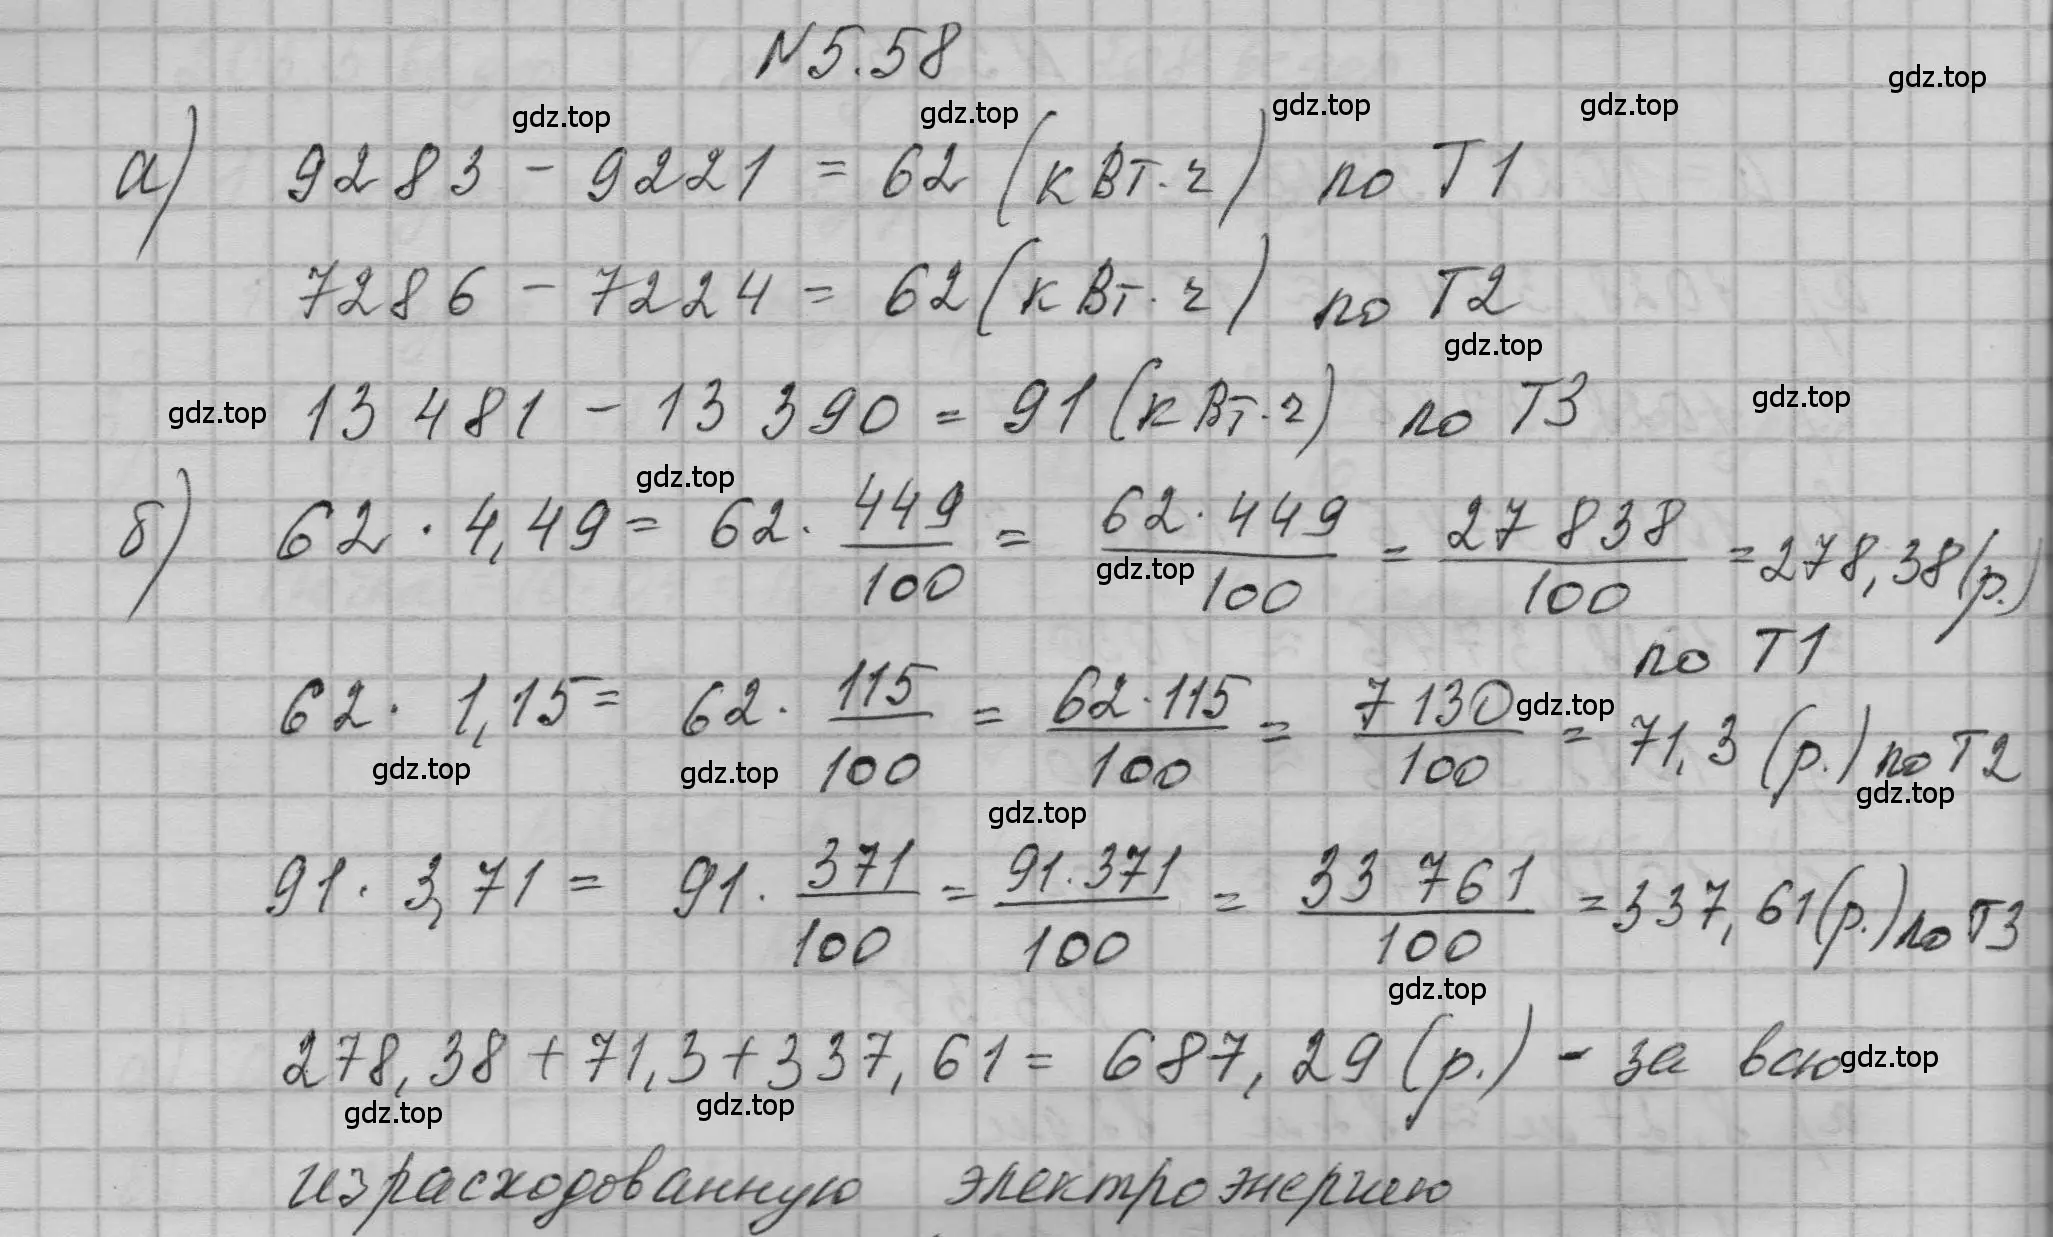 N5.58
gdz.top
gdz.top gdz.top gdz.top gdz.top
а) 9283 - 9221 = 62 (кВт·ч) по Т1
7286 - 7224 = 62 (кВт·ч) по Т2
gdz.top
gdz.top 13 481 - 13 390 = 91 (кВт·ч) по Т3 gdz.top
gdz.top
б) 62 · 4,49 = 62 · 449/100 = 62·449/100 = 27 838/100 = 278,38 (р.)
gdz.top
по Т1
62 · 1,15 = 62 · 115/100 = 62·115/100 = 7130/100 = 71,3 (р.) по Т2
gdz.top
gdz.top gdz.top gdz.top
gdz.top
91 · 3,71 = 91 · 371/100 = 91·371/100 = 33 761/100 = 337,61 (р.) по Т3
gdz.top
278,38 + 71,3 + 337,61 = 687,29 (р.) - за всю
gdz.top
gdz.top gdz.top
израсходованную электроэнергию